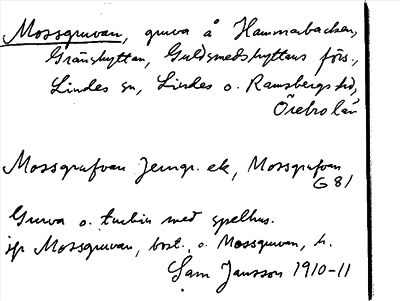 Mossgruvan, gruva å Hammarbacken,
Gränshyttan, Guldsmedshyttans förs.,
Lindes sn, Lindes o. Ramsbergs hd,
Örebro län
Mossgrufvan Jerngr. ek, Mossgrufvan
G 81
Gruva o. turbin med spelhus.
jfr Mossgruvan, bost. o. Mossgruvan, h.
Sam Jansson 1910-11